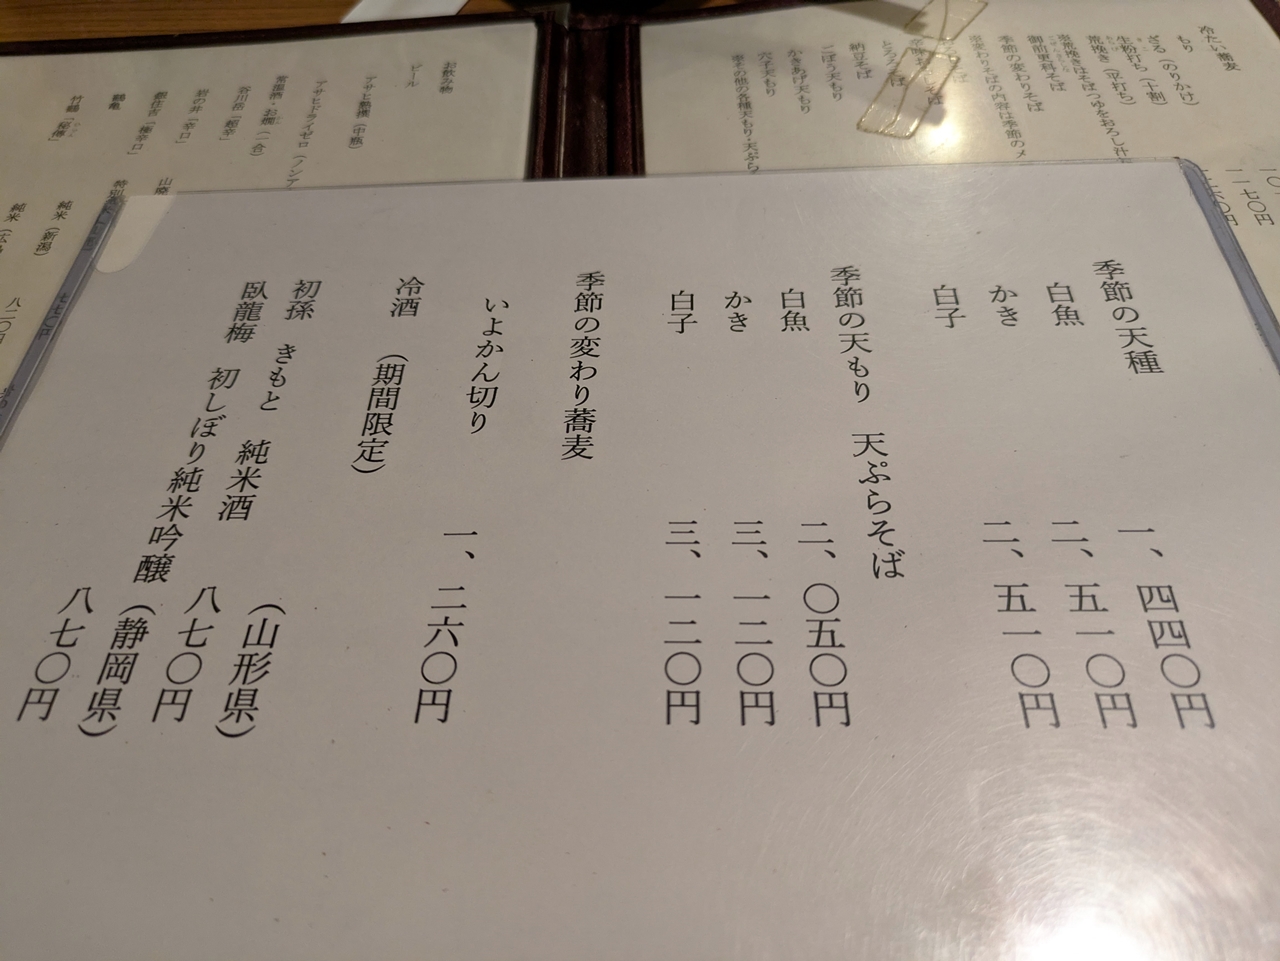 季節の天種
白魚 一、四四〇円
かき 二、五一〇円
白子 二、五一〇円
季節の天もり 天ぷらそば
白魚 二、〇五〇円
かき 三、一二〇円
白子 三、一二〇円
季節の変わり蕎麦
いよかん切り 一、二六〇円
冷酒 (期間限定)
初孫 きもと 純米酒 (山形県)
八七〇円
臥龍梅 初しぼり純米吟醸 (静岡県)
八七〇円
冷たい蕎麦
もり
ざる(のりかけ)
生粉打ち(十割)
荒挽き(平打ち)
荒挽きはそばつゆをおろし汁
御前更科そば
季節の変わりそば
変わりそばの内容は季節のメ
納豆そば
ごぼう天もり
かきあげ天もり
穴子天もり
その他の各種天もり・天ぷら
お飲み物
ビール
アサヒ熟撰(中瓶)
アサヒドライゼロ(ノンア
常温酒・お燗(一合)
谷川岳「超辛」
岩の井「辛口」
鶴亀
竹鶴「秘傳」
特別
純米(新潟)
純米